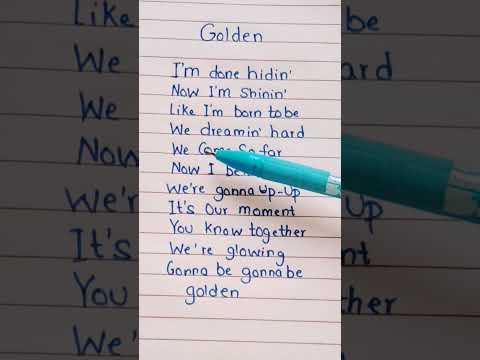 Golden
I'm done hidin'
Now I'm Shinin'
Like I'm born to be
We dreamin' hard
We Come So far
Now I
We're gonna Up-Up
It's Our moment
You know together
We're glowing
Gonna be gonna be
golden